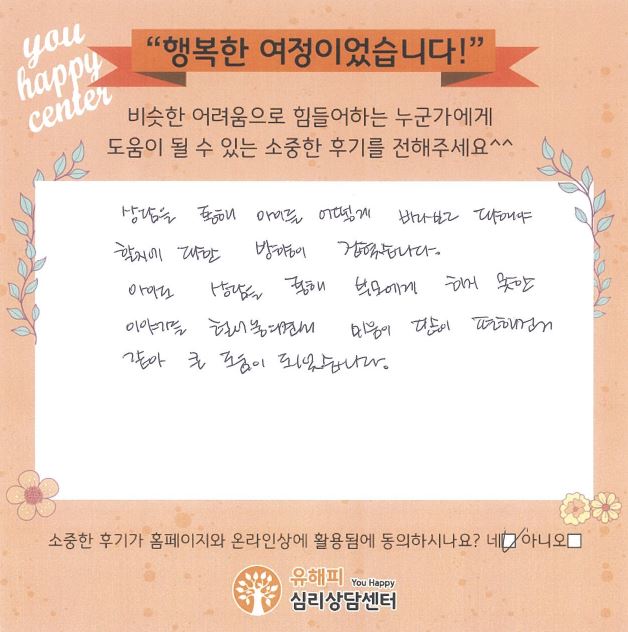 you
happy
center
“행복한 여정이었습니다!”
비슷한 어려움으로 힘들어하는 누군가에게
도움이 될 수 있는 소중한 후기를 전해주세요^^
상담을 통해 아이를 어떻게 바라보고 대해야
할지에 대한 방향이 잡혔습니다.
아이도 상담을 통해 부모에게 하지 못한
이야기를 마음이 많이 편해진거
같아 큰 도움이 되었습니다.
소중한 후기가 홈페이지와 온라인상에 활용됨에 동의하시나요? 네 아니오
유해피 You Happy
심리상담센터